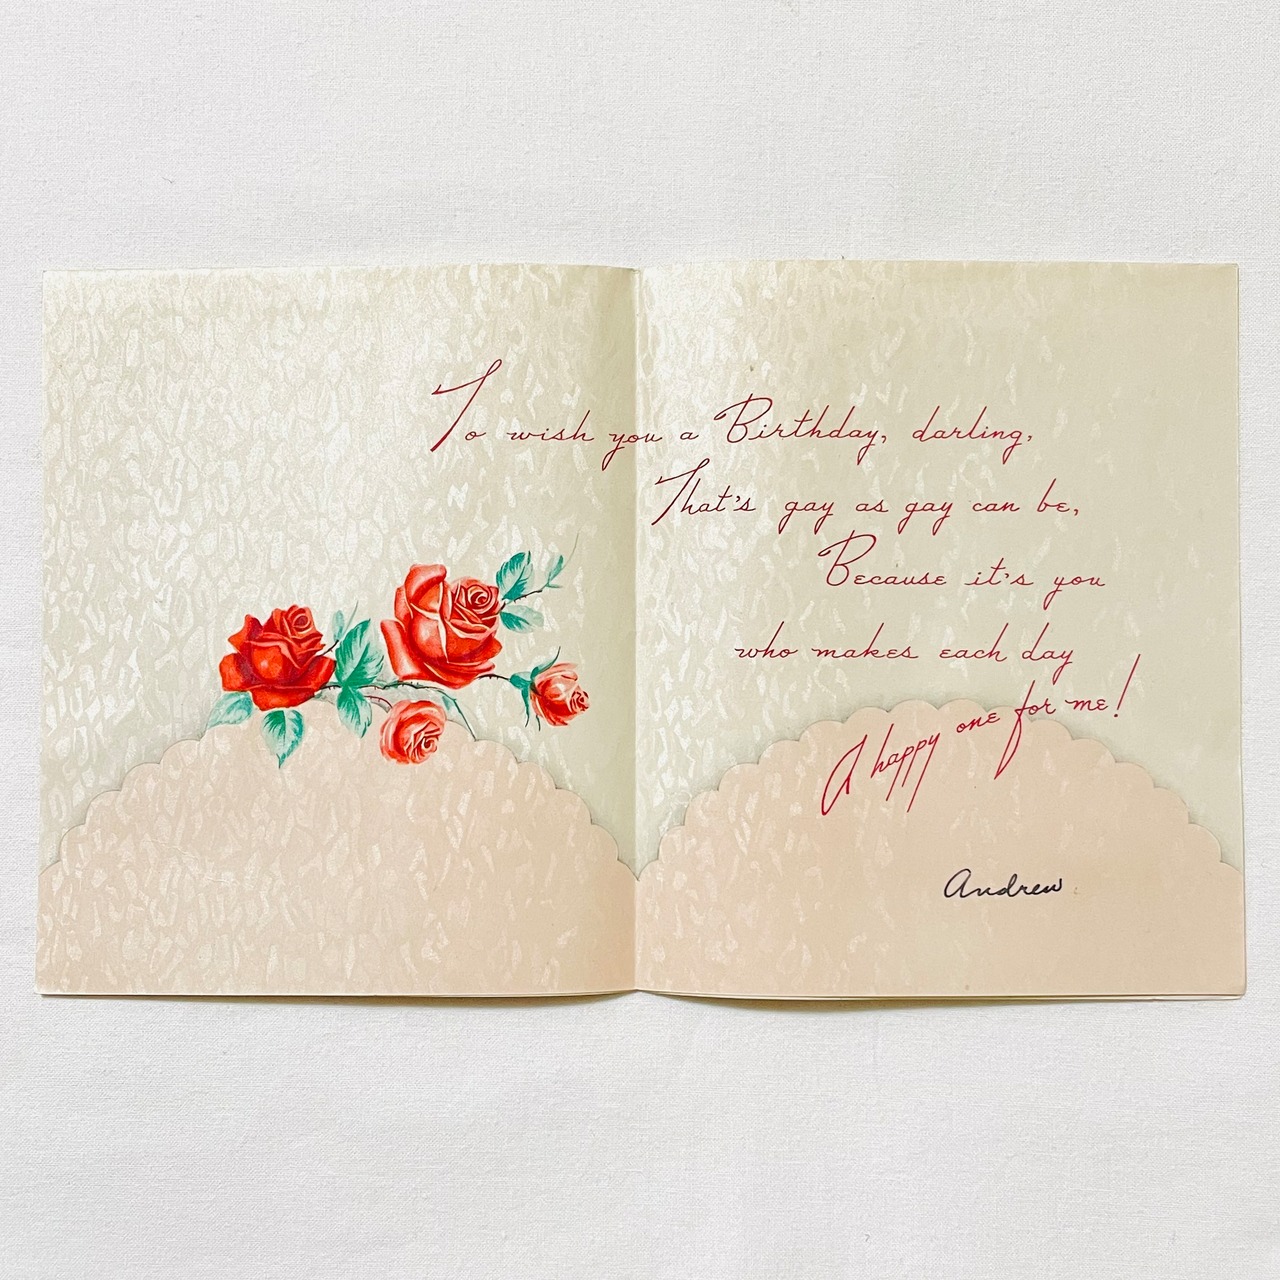 To wish you a Birthday, darling,
That's gay as gay can be,
Because it's you
who makes each day
A happy one for me!
Andrew